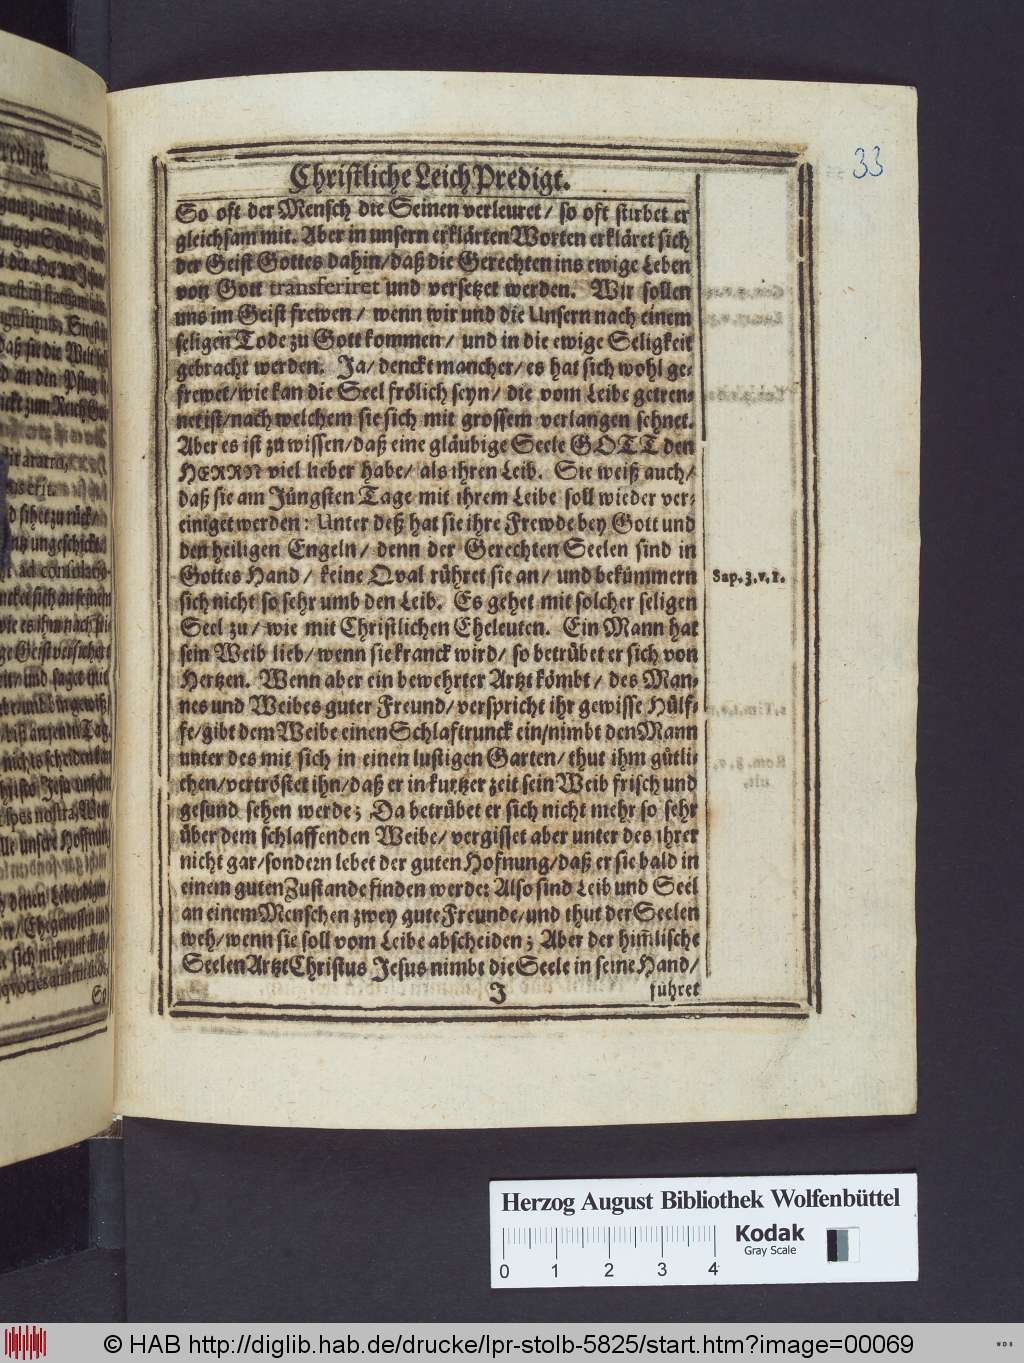 33
Christliche Leich Predigt.
So oft der Mensch die Seinen verleuret/ so oft stirbet er
gleichsam mit. Aber in unsern erklärten Worten erkläret sich
der Geist Gottes dahin/ daß die Gerechten ins ewige Leben
von Gott transferiret und versetzet werden. Wir sollen
uns im Geist frewen/ wenn wir und die Unsern nach einem
seligen Tode zu Gott kommen/ und in die ewige Seligkeit
gebracht werden. Ja/ denckt mancher/ es hat sich wohl ge-
frewet/ wie kan die Seel frölich seyn/ die vom Leibe getren-
net ist/ nach welchem sie sich mit grossem verlangen sehnet.
Aber es ist zu wissen/ daß eine gläubige Seele GOTT den
HERRN viel lieber habe/ als ihren Leib. Sie weiß auch/
daß sie am Jüngsten Tage mit ihrem Leibe soll wieder ver-
einiget werden: Unter deß hat sie ihre Frewde bey Gott und
den heiligen Engeln/ denn der Gerechten Seelen sind in
Gottes Hand/ keine Qval rühret sie an/ und bekümmern
Sap. 3. v. 1.
sich nicht so sehr umb den Leib. Es gehet mit solcher seligen
Seel zu/ wie mit Christlichen Eheleuten. Ein Mann hat
sein Weib lieb/ wenn sie kranck wird/ so betrübet er sich von
Hertzen. Wenn aber ein bewehrter Artzt kömbt/ des Man-
nes und Weibes guter Freund/ verspricht ihr gewisse Hülf-
fe/ gibt dem Weibe einen Schlaftrunck ein/ nimbt den Mann
unter des mit sich in einen lustigen Garten/ thut ihm gütli-
chen/ vertröstet ihn/ daß er in kurtzer zeit sein Weib frisch und
gesund sehen werde; Da betrübet er sich nicht mehr so sehr
über dem schlaffenden Weibe/ vergisset aber unter des ihrer
nicht gar/ sondern lebet der guten Hofnung/ daß er sie bald in
einem guten Zustande finden werde: Also sind Leib und Seel
an einem Menschen zwey gute Freunde/ und thut der Seelen
weh/ wenn sie soll vom Leibe abscheiden; Aber der him̃lische
Seelen Artzt Christus Jesus nimbt die Seele in seine Hand/
J
führet
Herzog August Bibliothek Wolfenbüttel
Kodak
Gray Scale
0 1 2 3 4
© HAB http://diglib.hab.de/drucke/lpr-stolb-5825/start.htm?image=00069